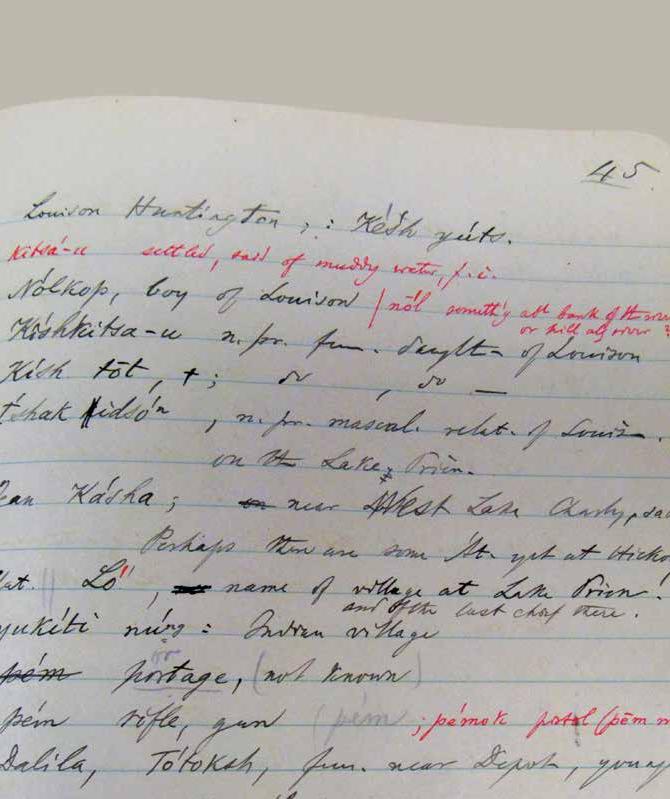 45
Louison Huntington, ; : Késh yúts.
Kitsá-u settled, said of muddy water, f. i.
Nólkop, boy of Louison / nōl someth'g att bank of the
or hill alg river ?
Kishkitsa-u n. pr. fem. daught- of Louison
Kish tōt, +; do, do —
tshak , n. pr. mascul. relat. of Louis-.
on the Lake, Prien.
ean Kásha ; near West Lake Charly,
Perhaps there are some At. yet at
Lo", name of village at Lake Prien.
and of the last chief there.
yukíti núng : Indian village
or
pém portage, (not known)
pém rifle, gun (pém ; pémok pistol (pēm
Dalila, Tótoksh, fem. near Depot,